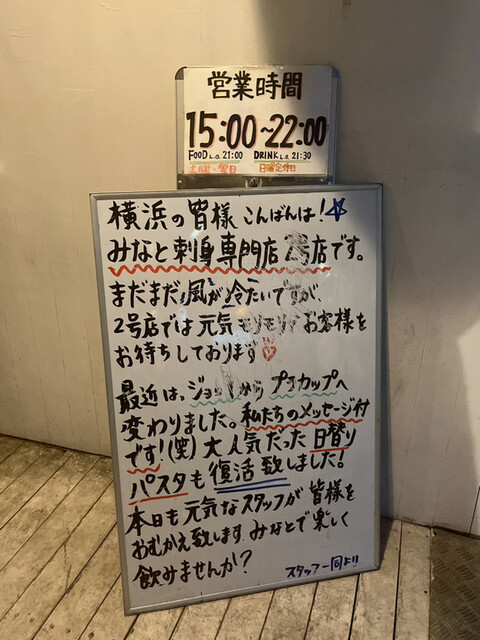 営業時間
15:00~22:00
FOOD L.O. 21:00 DRINK L.O. 21:30
日曜定休日
横浜の皆様 こんばんは!☆
みなと刺身専門店 2号店です。
まだまだ風が冷たいですが、
2号店では元気モリモリでお客様を
お待ちしております♡
最近は、ジョッキから プラカップへ
変わりました。私たちのメッセージ付
です!(笑)大人気だった 日替り
パスタも復活致しました!
本日も元気なスタッフが皆様を
おむかえ致します みなとで楽しく
飲みませんか?
スタッフ一同より